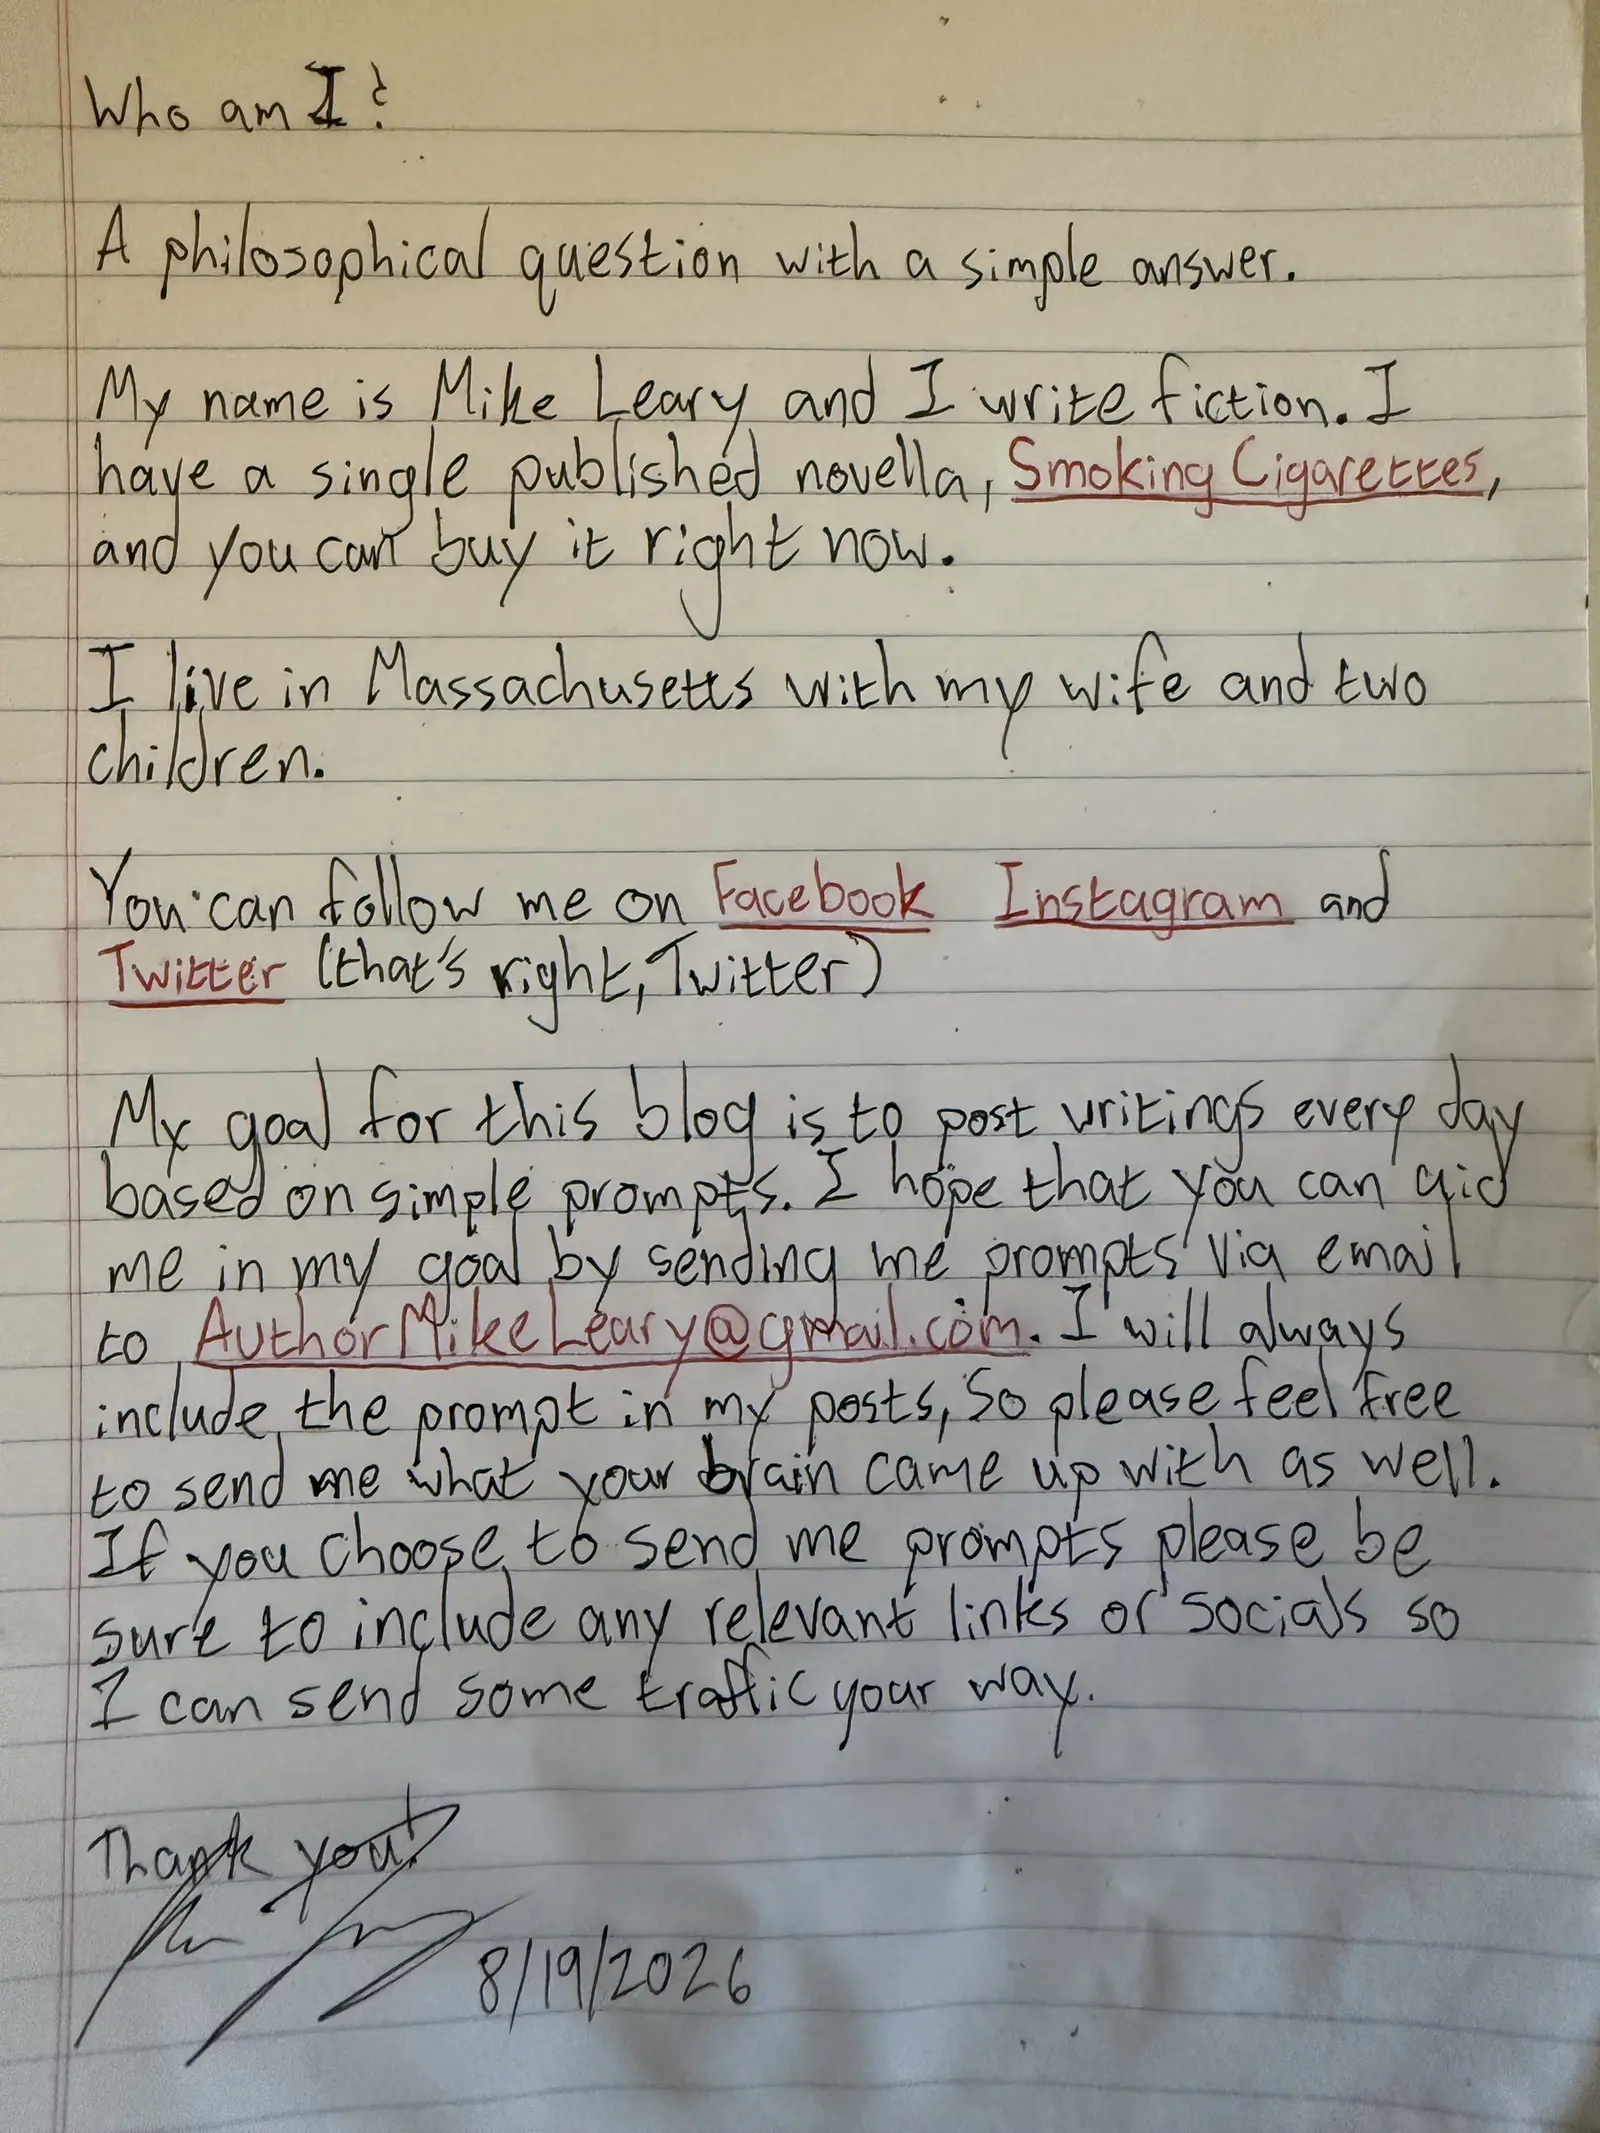 Who am I?
A philosophical question with a simple answer.
My name is Mike Leary and I write fiction. I
have a single published novella, Smoking Cigarettes,
and you can buy it right now.
I live in Massachusetts with my wife and two
children.
You can follow me on Facebook Instagram and
Twitter (that's right, Twitter)
My goal for this blog is to post writings every day
based on simple prompts. I hope that you can aid
me in my goal by sending me prompts via email
to AuthorMikeLeary@gmail.com. I will always
include the prompt in my posts, so please feel free
to send me what your brain came up with as well.
If you choose to send me prompts please be
sure to include any relevant links or socials so
I can send some traffic your way.
Thank you!
8/19/2026